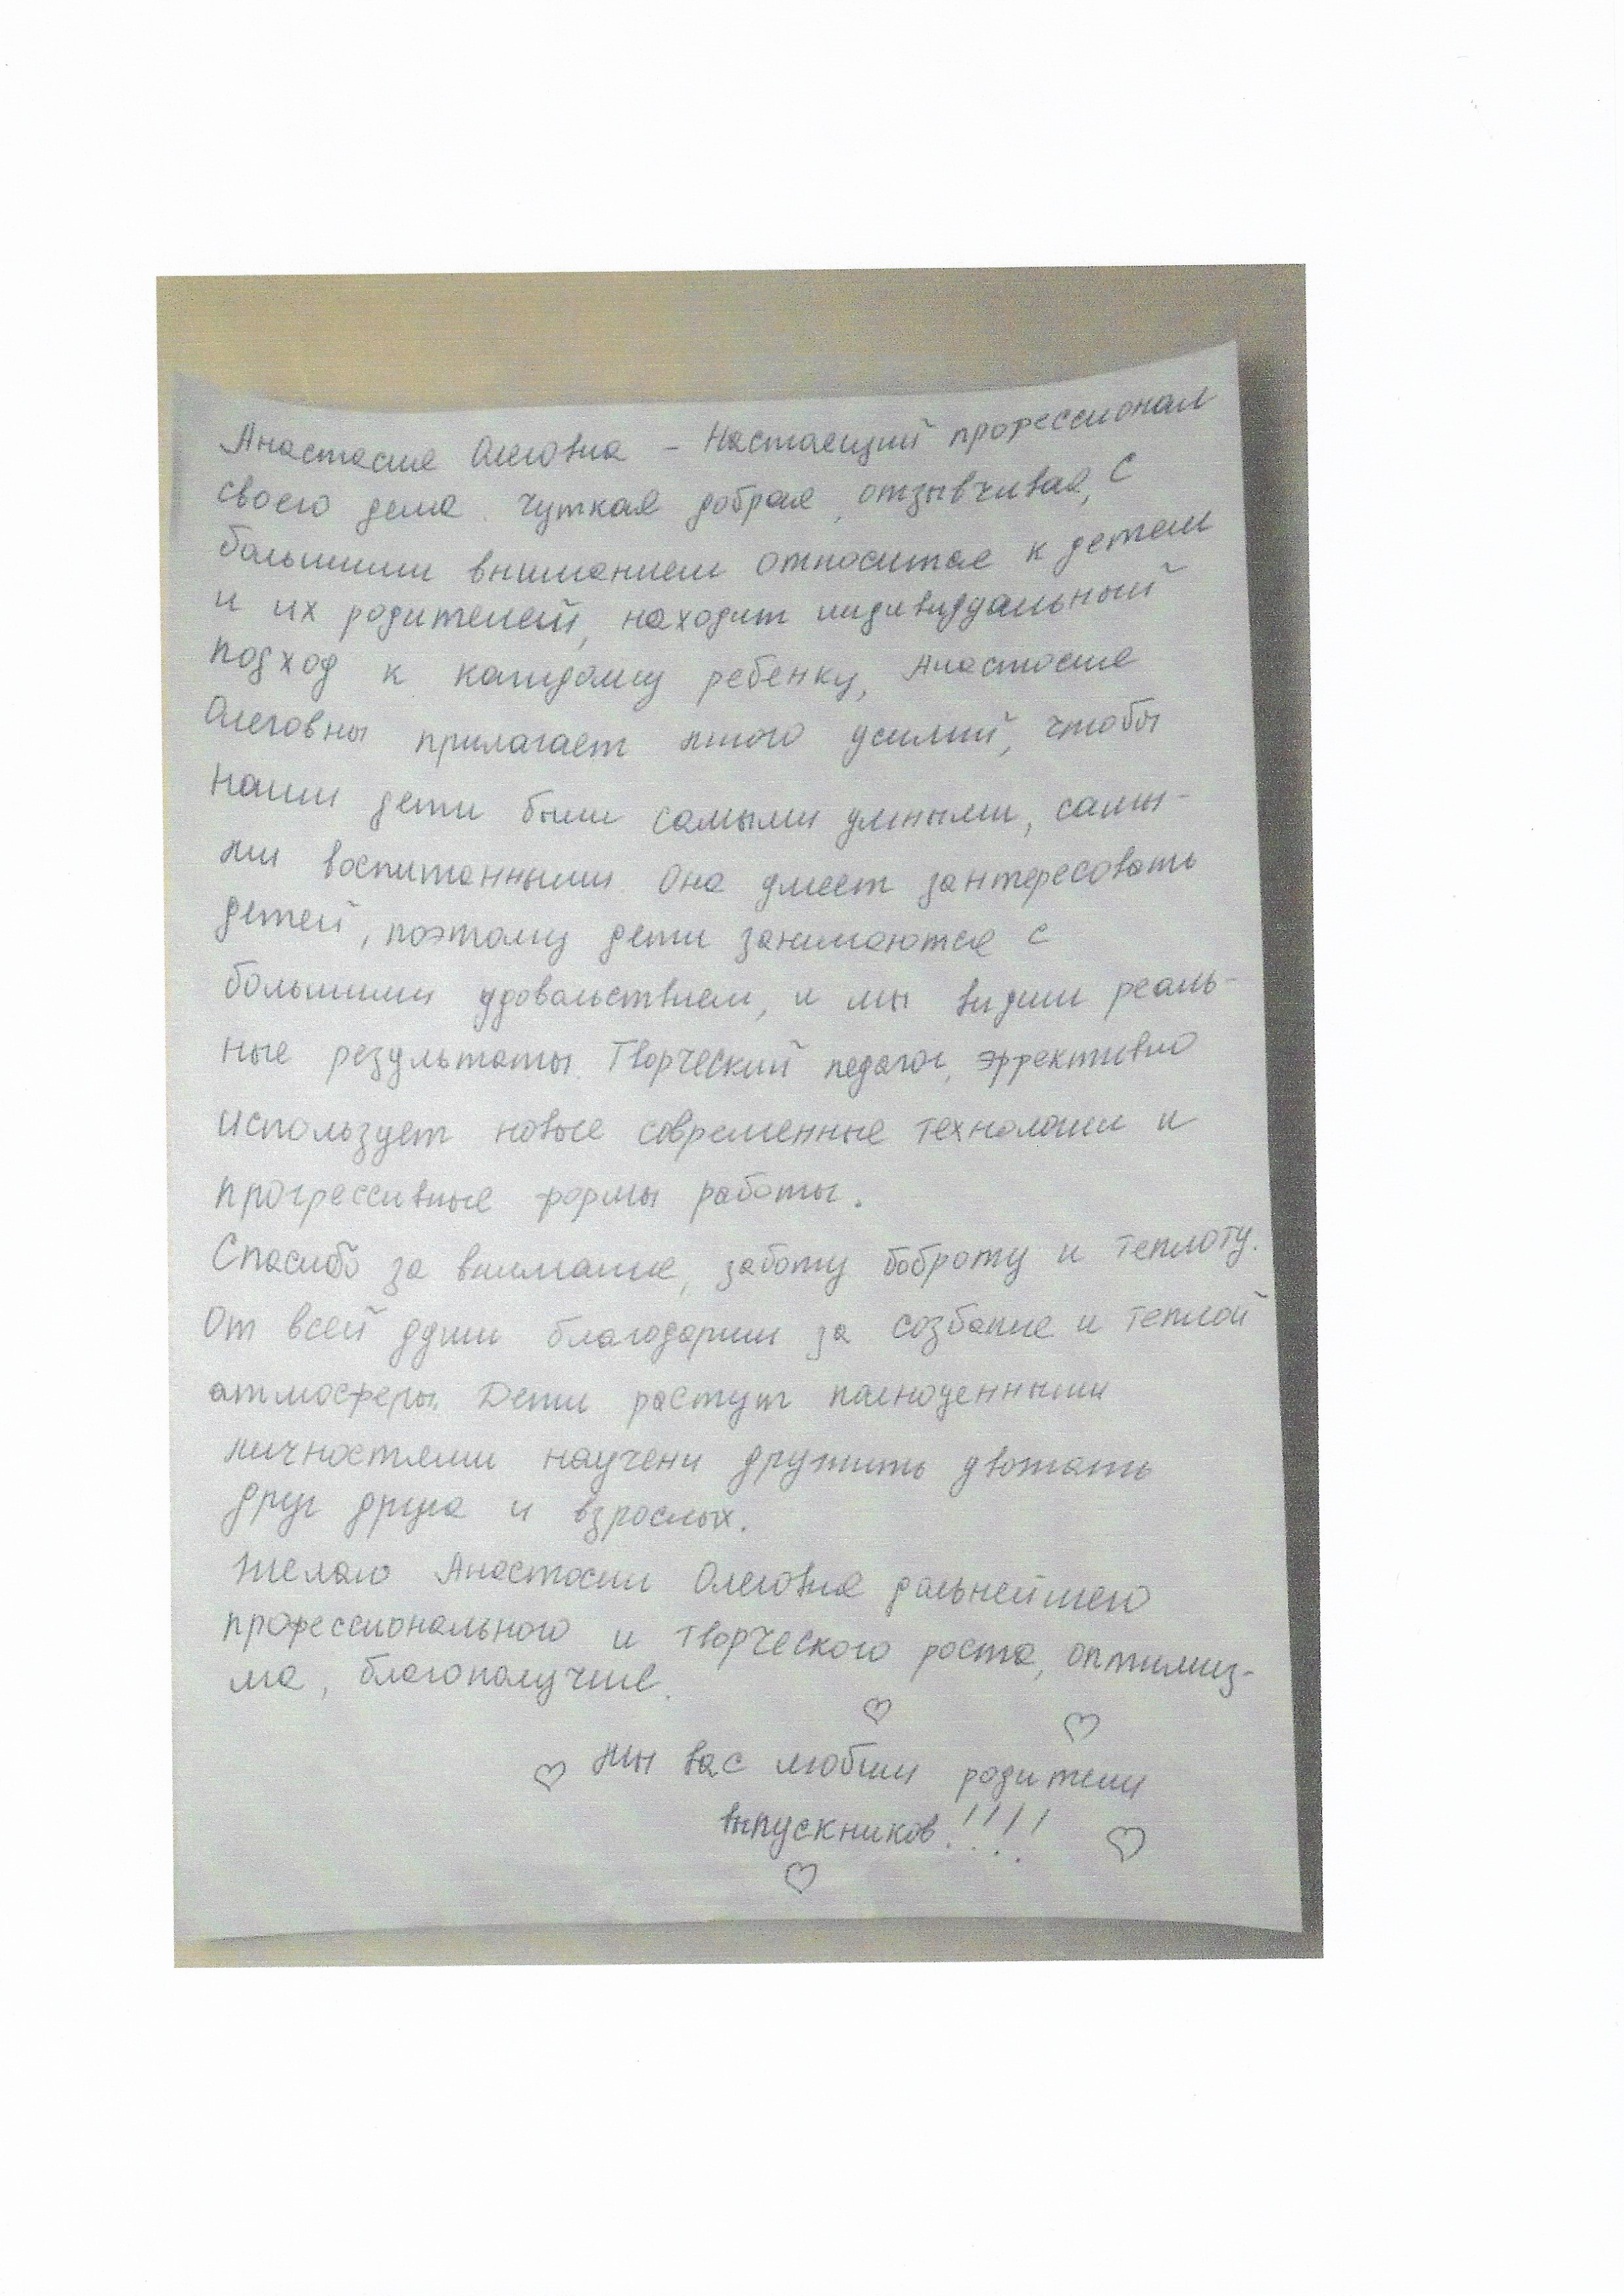 Анастасия Олеговна – Настаящий профессионал
своего дела. Чуткая добрая, отзывчивая, С
большими вниманием относится к детям
и их родителей, находит индивиддуальный
подход к каждому ребенку, Анастасия
Олеговны прилагает много усилий, чтобы
наши дети были самыми умными, самы-
ми воспитанными. Она умеет зантересовать
детей, поэтому дети занимаются с
большими удовольствием, и мы видим реаль-
ные результаты. Творческий педагог, эффективно
использует новые современные технологии и
прогрессивные формы работы.
Спасибо за внимание, заботу боброту и теплоту.
От всей души благодарим за созбание и теплой
атмосферы. Дети растут полноценными
личностями научены дружить увожать
друг друга и взрослых.
Желаю Анастасии Олеговне дальнейшего
профессионального и творческого роста, оптимиз-
ма, благополучие.
Мы вас любим родители
выпускников!!!!